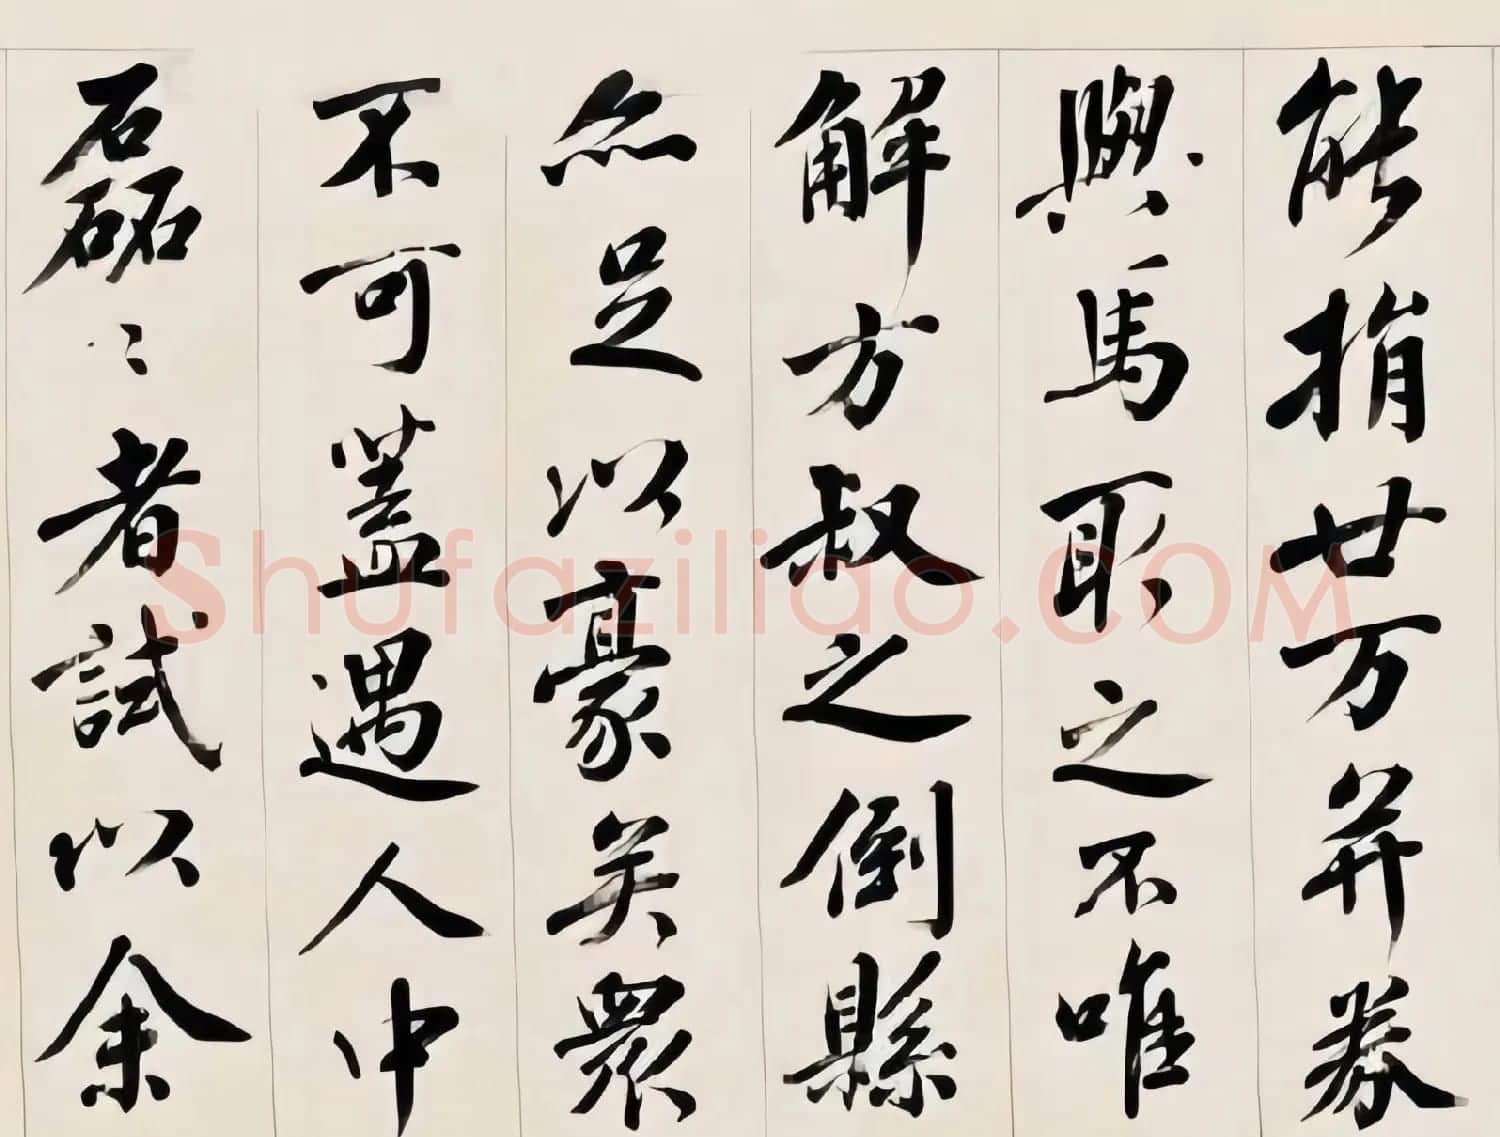 能捐廿万并券
與馬取之不唯
解方叔之倒縣
亦足以豪矣衆
不可蓋遇人中
磊〻者試以余
Shufaziliao.COM